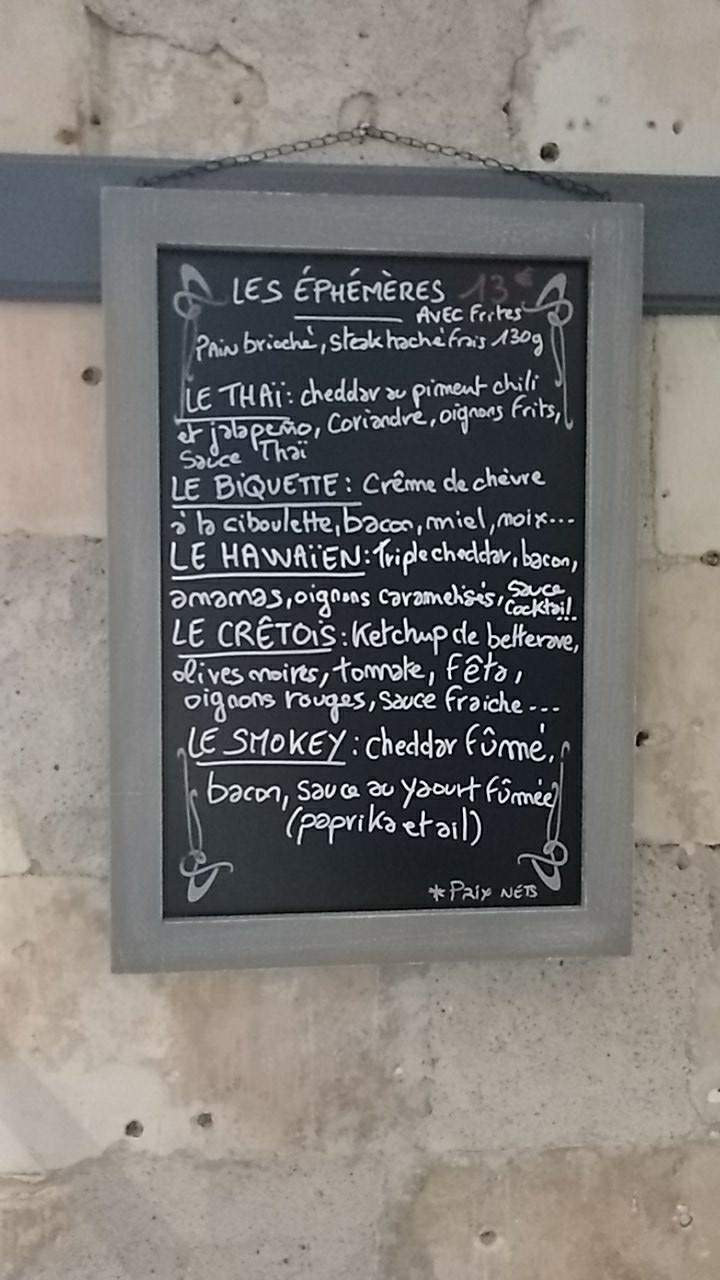 LES ÉPHÉMÈRES 13€
AVEC Frites
PAIN brioché, steak haché frais 130g
LE THAï: cheddar au piment chili
et jalapeño, Coriandre, oignons frits,
Sauce Thaï
LE BiQUETTE: Crême de chèvre
à la ciboulette, bacon, miel, noix...
LE HAWAïEN: Triple cheddar, bacon,
amamas, oignons caramelisés, Sauce
Cocktail...
LE CRÊTOiS: Ketchup de betterave,
olives noires, tommate, Fêta,
oignons rouges, sauce fraiche ---
LE SMOKEY: cheddar fûmé,
bacon, sauce au yaourt fûmée
(paprika et ail)
*PRix NETS